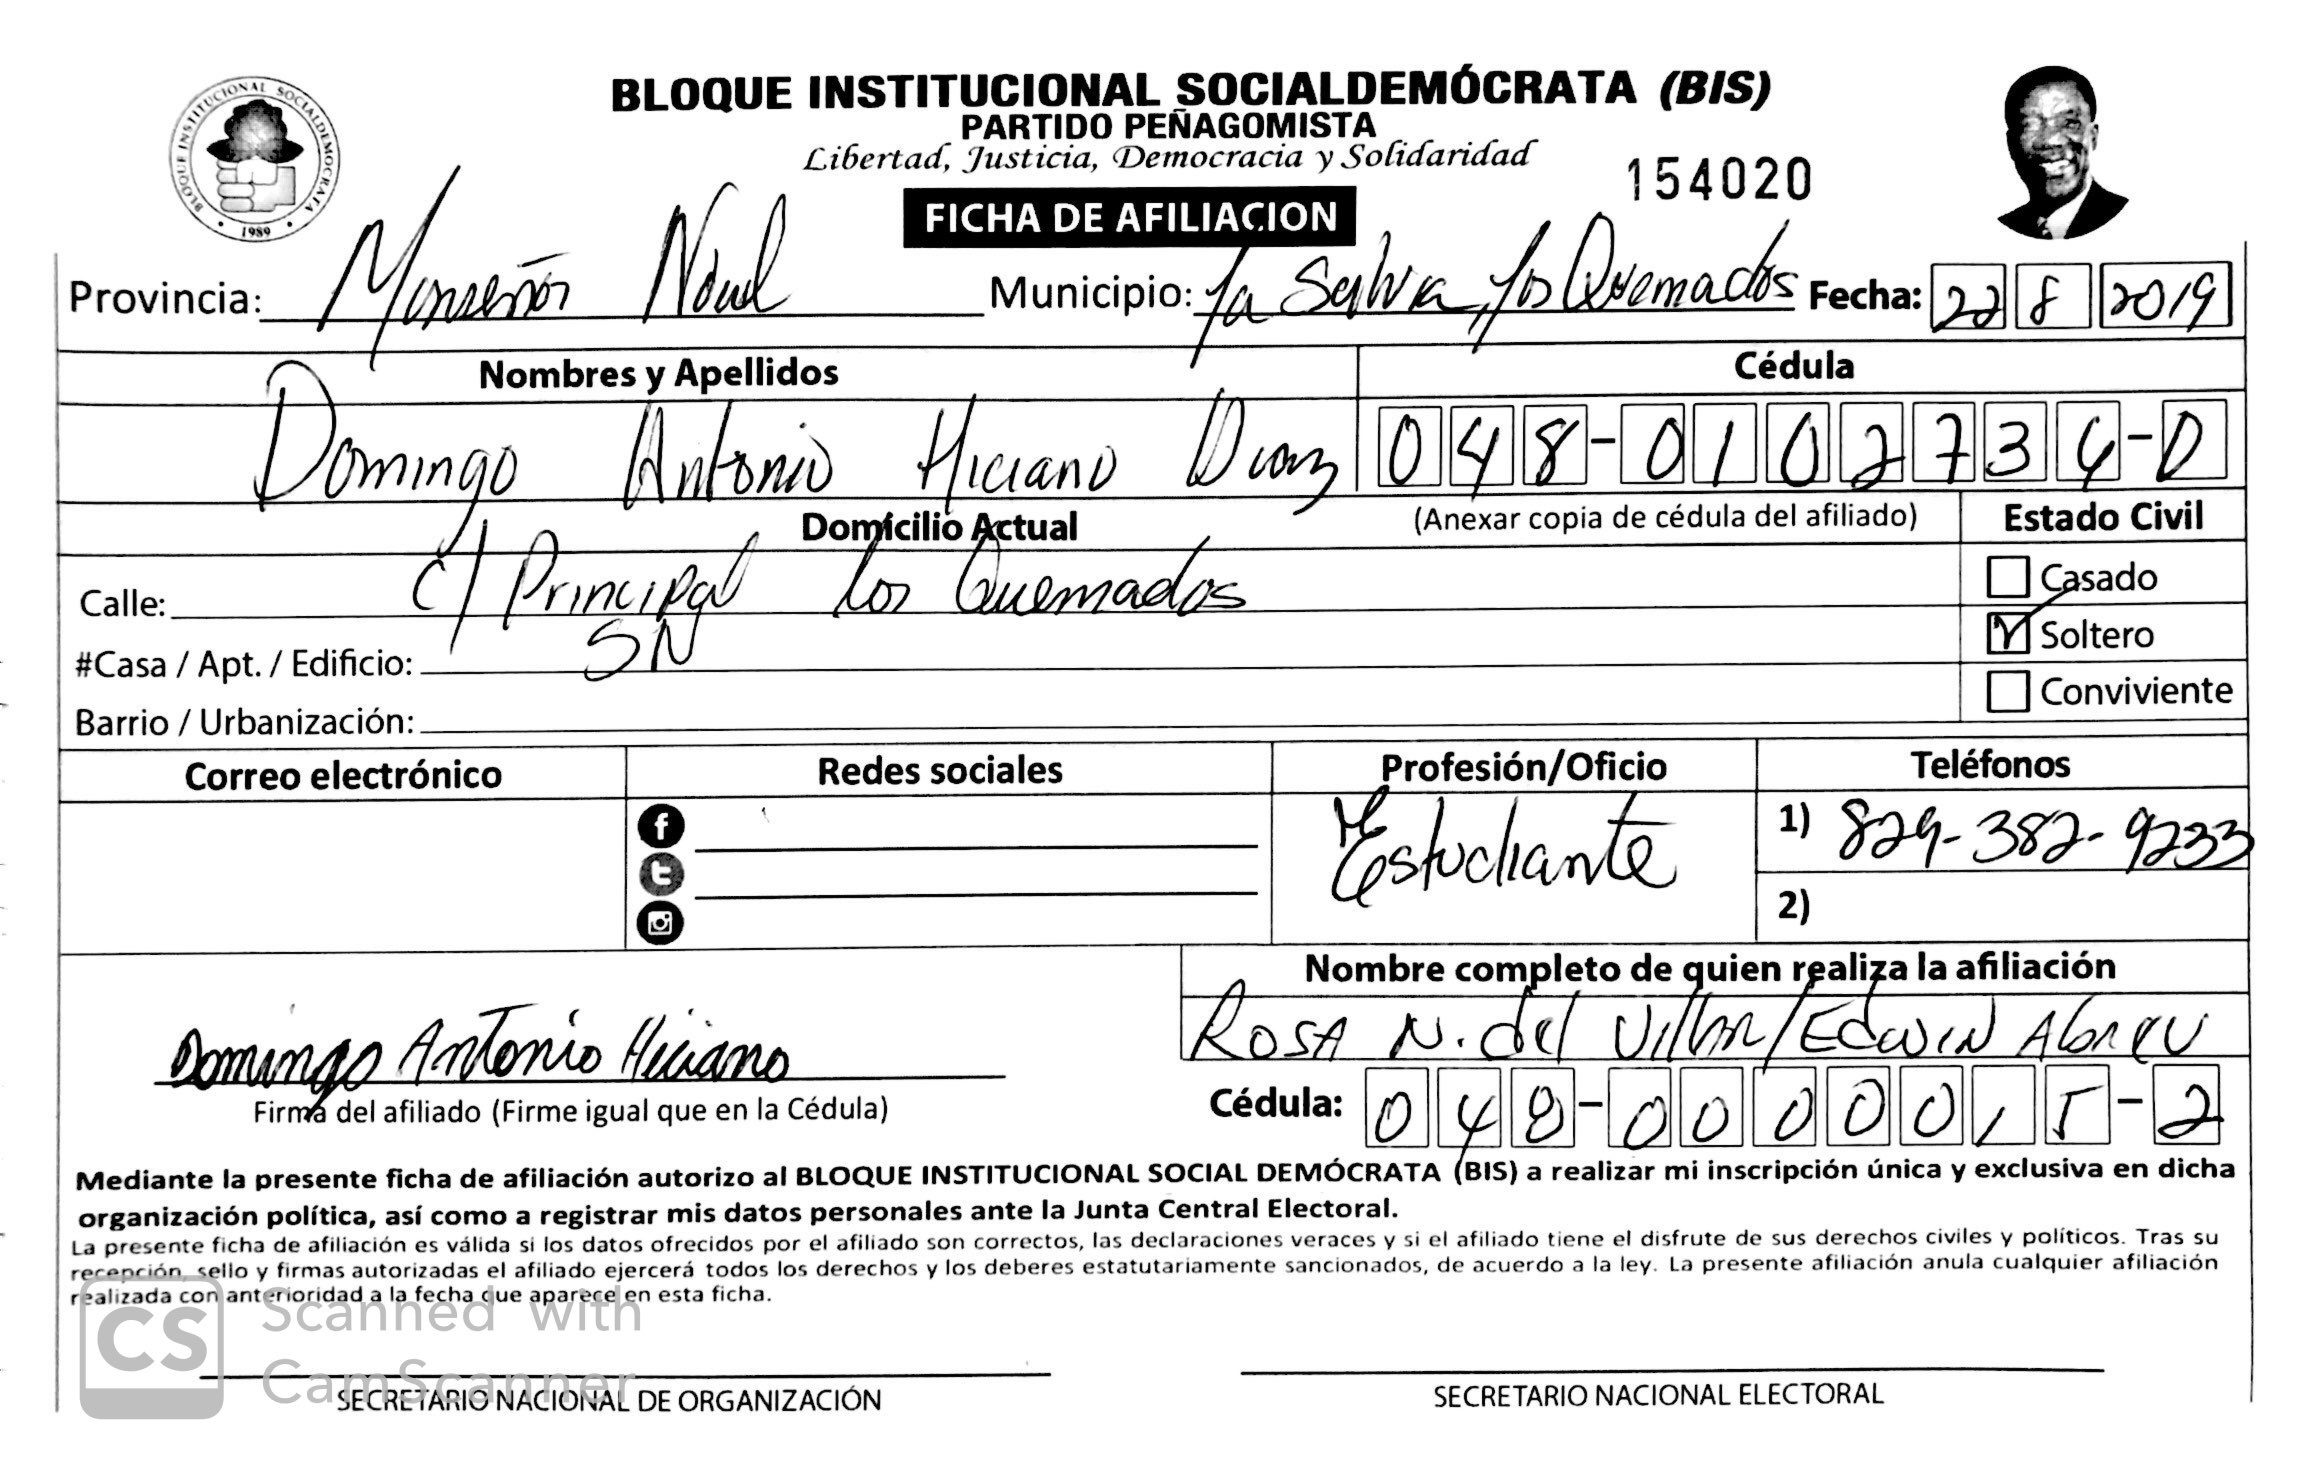 BLOQUE INSTITUCIONAL SOCIALDEMÓCRATA (BIS)
BLOQUE INSTITUCIONAL SOCIALDEMOCRATA
1989
PARTIDO PEÑAGOMISTA
Libertad, Justicia, Democracia y Solidaridad
154020
FICHA DE AFILIACION
Provincia: Monseñor Nouel Municipio: La Salvia, los Quemados Fecha: 22 8 2019
Nombres y Apellidos Cédula
Domingo Antonio Hiciano Diaz 048-0102734-0
Domicilio Actual (Anexar copia de cédula del afiliado) Estado Civil
Calle: c/ Principal Los Quemados Casado
#Casa / Apt. / Edificio: SN Soltero
Barrio / Urbanización: Conviviente
Correo electrónico Redes sociales Profesión/Oficio Teléfonos
Estudiante 1) 829-382-9233
2)
Nombre completo de quien realiza la afiliación
Rosa N. del Villar/Edwin Abreu
Domingo Antonio Hiciano
Firma del afiliado (Firme igual que en la Cédula) Cédula: 048-0000015-2
Mediante la presente ficha de afiliación autorizo al BLOQUE INSTITUCIONAL SOCIAL DEMÓCRATA (BIS) a realizar mi inscripción única y exclusiva en dicha
organización política, así como a registrar mis datos personales ante la Junta Central Electoral.
La presente ficha de afiliación es válida si los datos ofrecidos por el afiliado son correctos, las declaraciones veraces y si el afiliado tiene el disfrute de sus derechos civiles y políticos. Tras su
recepción, sello y firmas autorizadas el afiliado ejercerá todos los derechos y los deberes estatutariamente sancionados, de acuerdo a la ley. La presente afiliación anula cualquier afiliación
realizada con anterioridad a la fecha que aparece en esta ficha.
CS Scanned with
CamScanner
SECRETARIO NACIONAL DE ORGANIZACIÓN SECRETARIO NACIONAL ELECTORAL